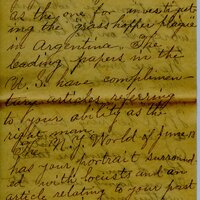 as the one for investigat-
ing the "grasshopper plague"
in Argentina. The
leading papers in the
U.S. have complimen-
tary articles referring
to your ability as the
right man.
The N.Y. World of June 13
has your portrait surround-
ed with locusts and an
article relating to your past